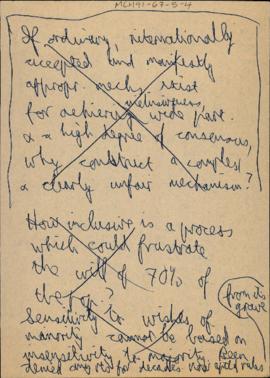 MCH91-67-5-4
If ordinary, internationally
accepted and manifestly
appropr. mechs exist
inclusiveness,
for achieving wide part.
& a high degree of consensus,
why construct a complex
& clearly unfair mechanism?
How inclusive is a process
which could frustrate
the will of 70% of
the pop?
from its
grave
Sensitivity to wishes of
minority cannot be based on
insensitivity to majority been
denied any vote for decades now